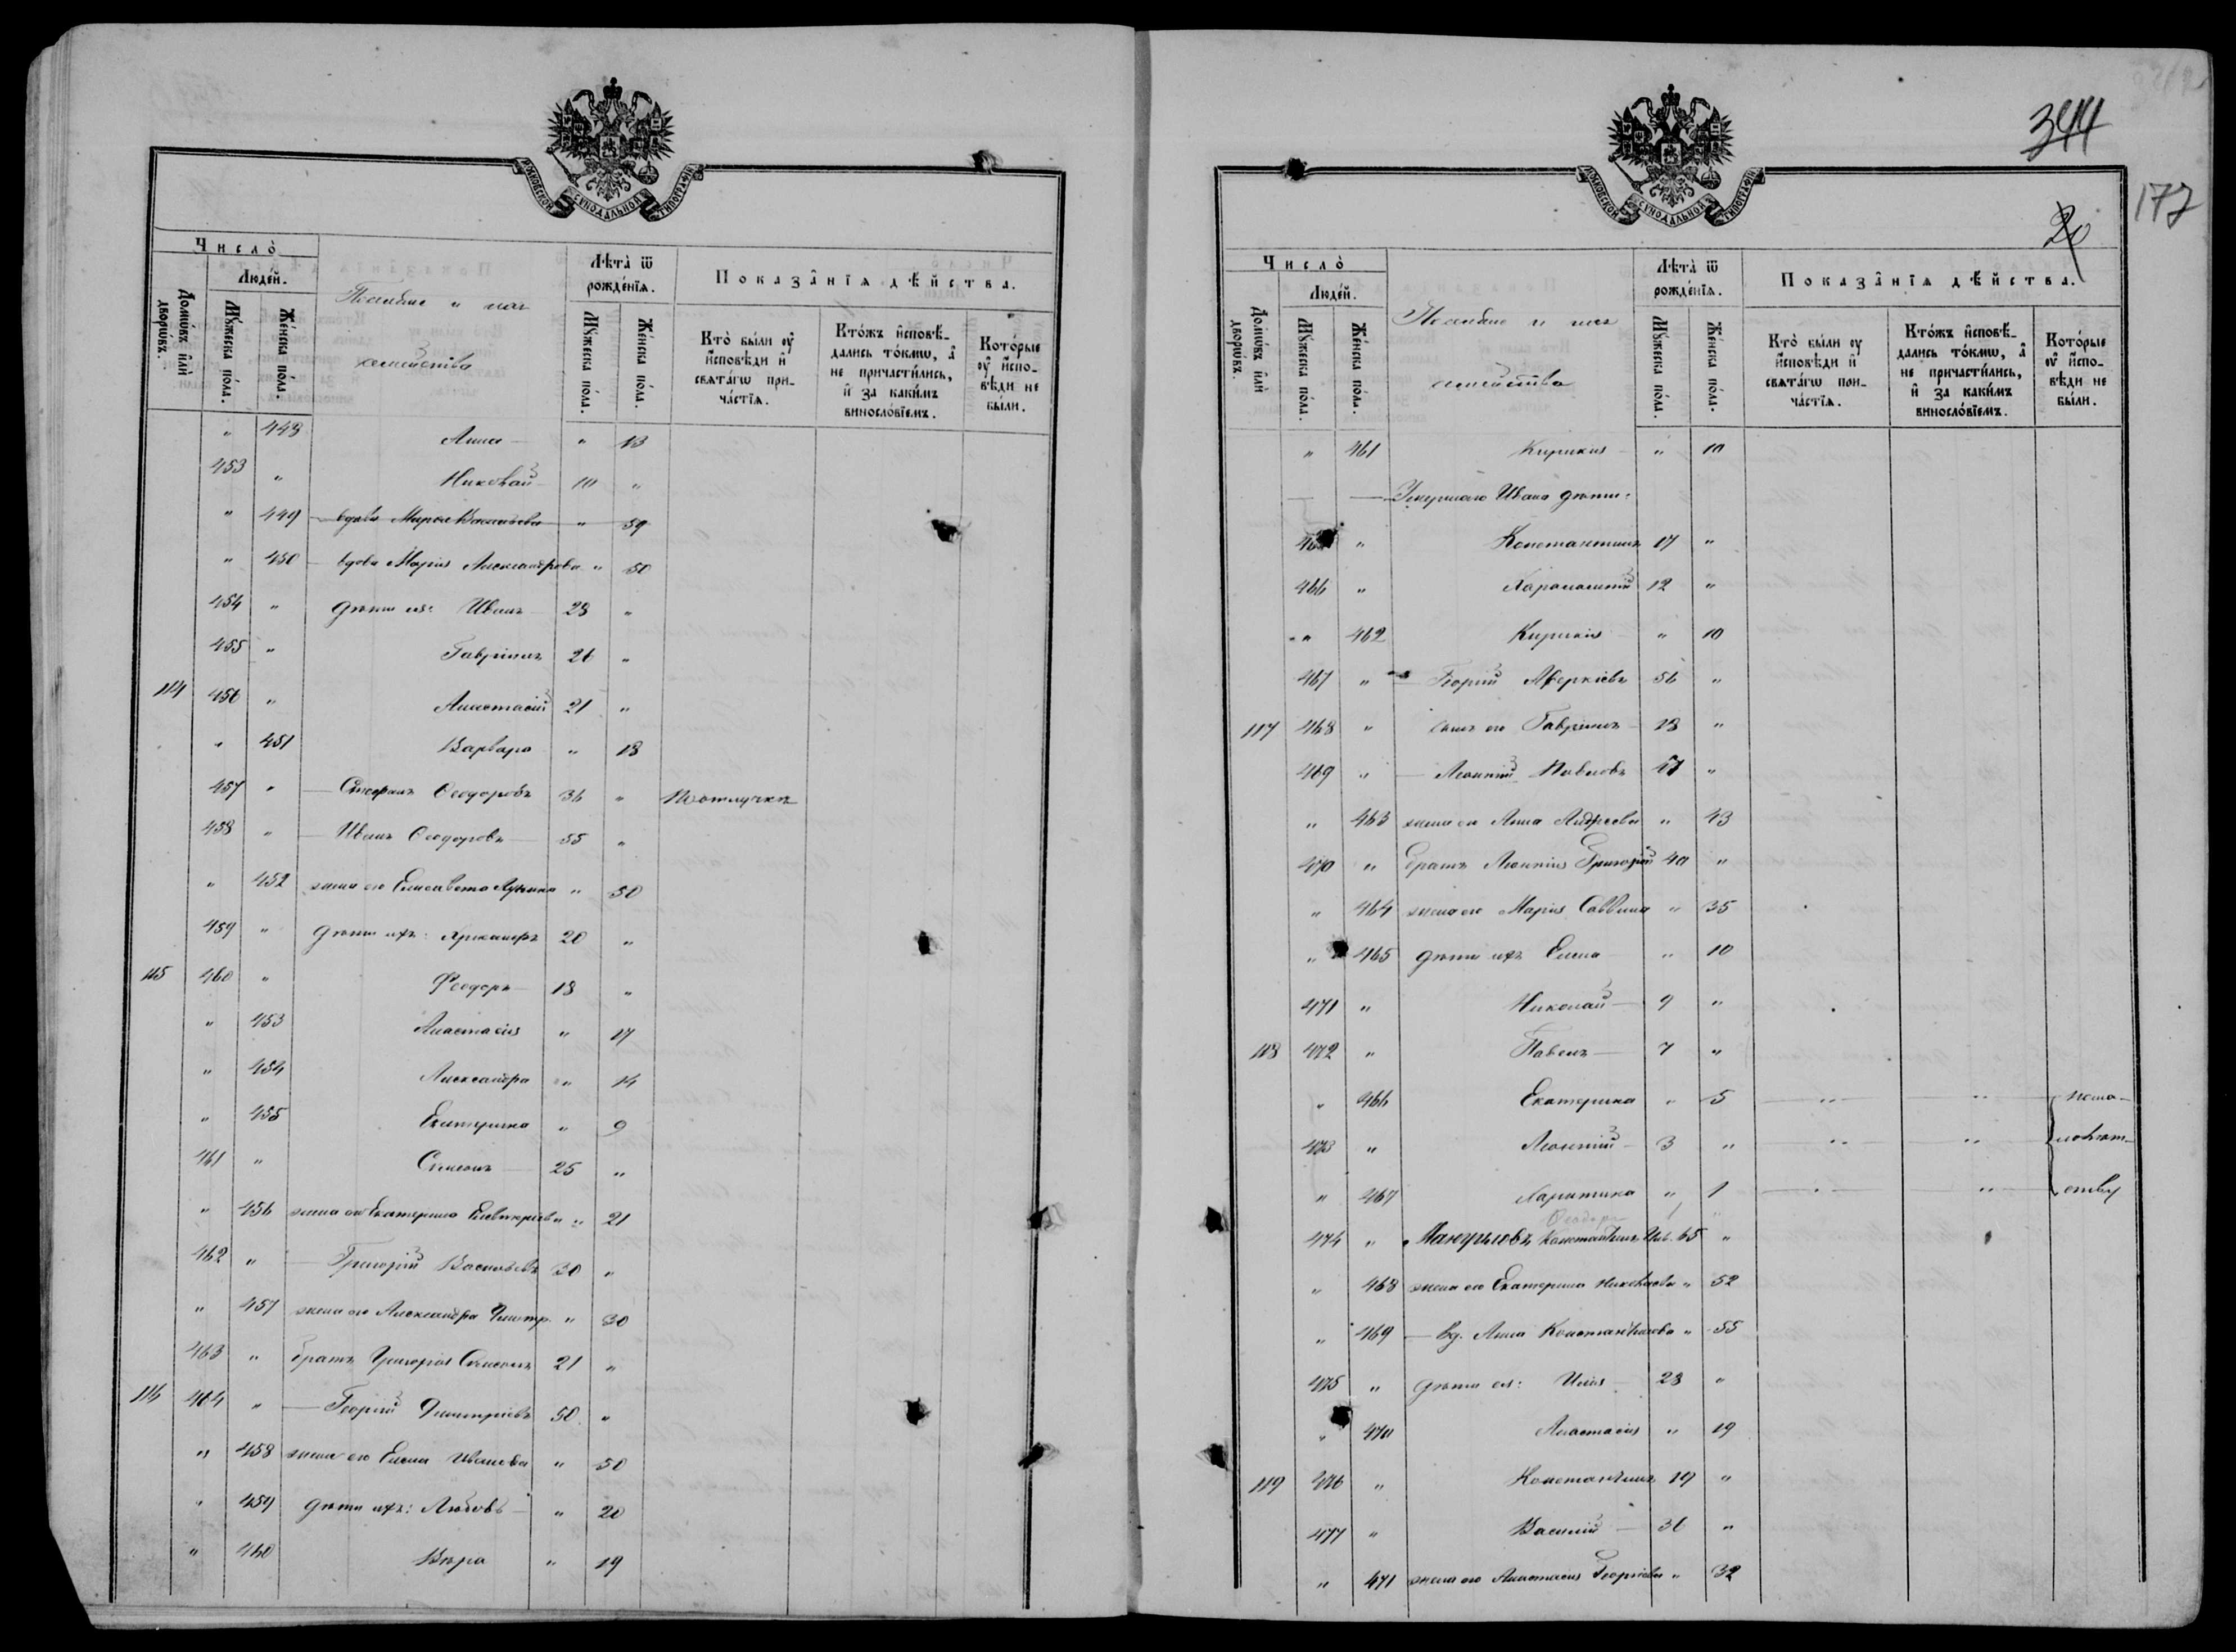 МОСКОВСКОЙ СУНОДАЛЬНОЙ ТИПОГРАФІИ
Число̀
Люде́й.
Домѡ́въ и҆лѝ дворѡ́въ.
Мꙋ́жеска по́ла.
Же́нска по́ла.
Поселяне и ихъ
семейства
Лѣта̀ ѿ рожде́нїѧ.
Мꙋ́жеска по́ла.
Же́нска по́ла.
Показа̑нїѧ дѣ́йства.
Кто̀ бы́ли ᲂу҆ и҆сповѣди и҆ свѧта́гѡ прича́стїѧ.
Кто́жъ и҆сповѣ́дались то́кмѡ, а҆ не причасти́лись, и҆ за каки́мъ винослов́їемъ.
Кото́рые ᲂу҆ и҆сповѣди не бы́ли.
" 448 Анна " 13
453 " Николай 10 "
" 449 вдова Марѳа Васильева " 59
" 450 вдова Марія Александрова " 50
454 " дѣти ея: Иванъ 28 "
455 " Гавріилъ 26 "
114 456 " Анастасій 21 "
" 451 Варвара " 18
457 " Стефанъ Ѳеодоровъ 36 " По отлучкѣ
458 " Иванъ Ѳеодоровъ 55 "
" 452 жена его Елисавета " 50
459 " дѣти ихъ: 20 "
115 460 " Ѳеодоръ 18 "
" 453 Анастасія " 17
" 454 Александра " 14
" 455 Екатерина " 9
461 " Симеонъ 25 "
" 456 жена его Екатерина Елевтеріева " 21
462 " Григорій Васильевъ 30 "
" 457 жена его Александра Димитр. " 30
463 " братъ Григорія Симеонъ 21 "
116 464 " Георгій Димитріевъ 50 "
" 458 жена его Елена Иванова " 50
" 459 дѣти ихъ: Любовь " 20
" 460 Вѣра " 19
344
177
20
МОСКОВСКОЙ СУНОДАЛЬНОЙ ТИПОГРАФІИ
Число̀
Люде́й.
Домѡ́въ и҆лѝ дворѡ́въ.
Мꙋ́жеска по́ла.
Же́нска по́ла.
Поселяне и ихъ
семейства
Лѣта̀ ѿ рожде́нїѧ.
Мꙋ́жеска по́ла.
Же́нска по́ла.
Показа̑нїѧ дѣ́йства.
Кто̀ бы́ли ᲂу҆ и҆сповѣди и҆ свѧта́гѡ прича́стїѧ.
Кто́жъ и҆сповѣ́дались то́кмѡ, а҆ не причасти́лись, и҆ за каки́мъ винослов́їемъ.
Кото́рые ᲂу҆ и҆сповѣди не бы́ли.
" 461 Кирикія " 10
Умершаго Ивана дѣти:
" Константинъ 17 "
466 " Харалампій 12 "
" 462 Кирикія " 10
467 " Георгій Аверкіевъ 56 "
117 468 " сынъ его Гавріилъ 18 "
469 " Леонтій Павловъ "
" 463 жена его Анна Андреева " 43
470 " братъ Леонтія Григорій 40 "
" 464 жена его Марія Саввина " 35
" 465 дѣти ихъ Елена " 10
471 " Николай 9 "
118 472 " Павелъ 7 "
" 466 Екатерина " 5 " " по ма-
473 " Леонтій 3 " " " лолѣт-
" 467 Харитина " 1 " " ству
Ѳеодоръ 1 "
474 " Манguловъ Константинъ Ив. 65 "
" 468 жена его Екатерина Николаева " 52
" 469 вд. Анна Константинова " 55
475 " дѣти ея: Илія 23 "
" 470 Анастасія " 19
119 476 " Константинъ 19 "
477 " Василій 36 "
" 471 жена его Анастасія Георгіева " 32